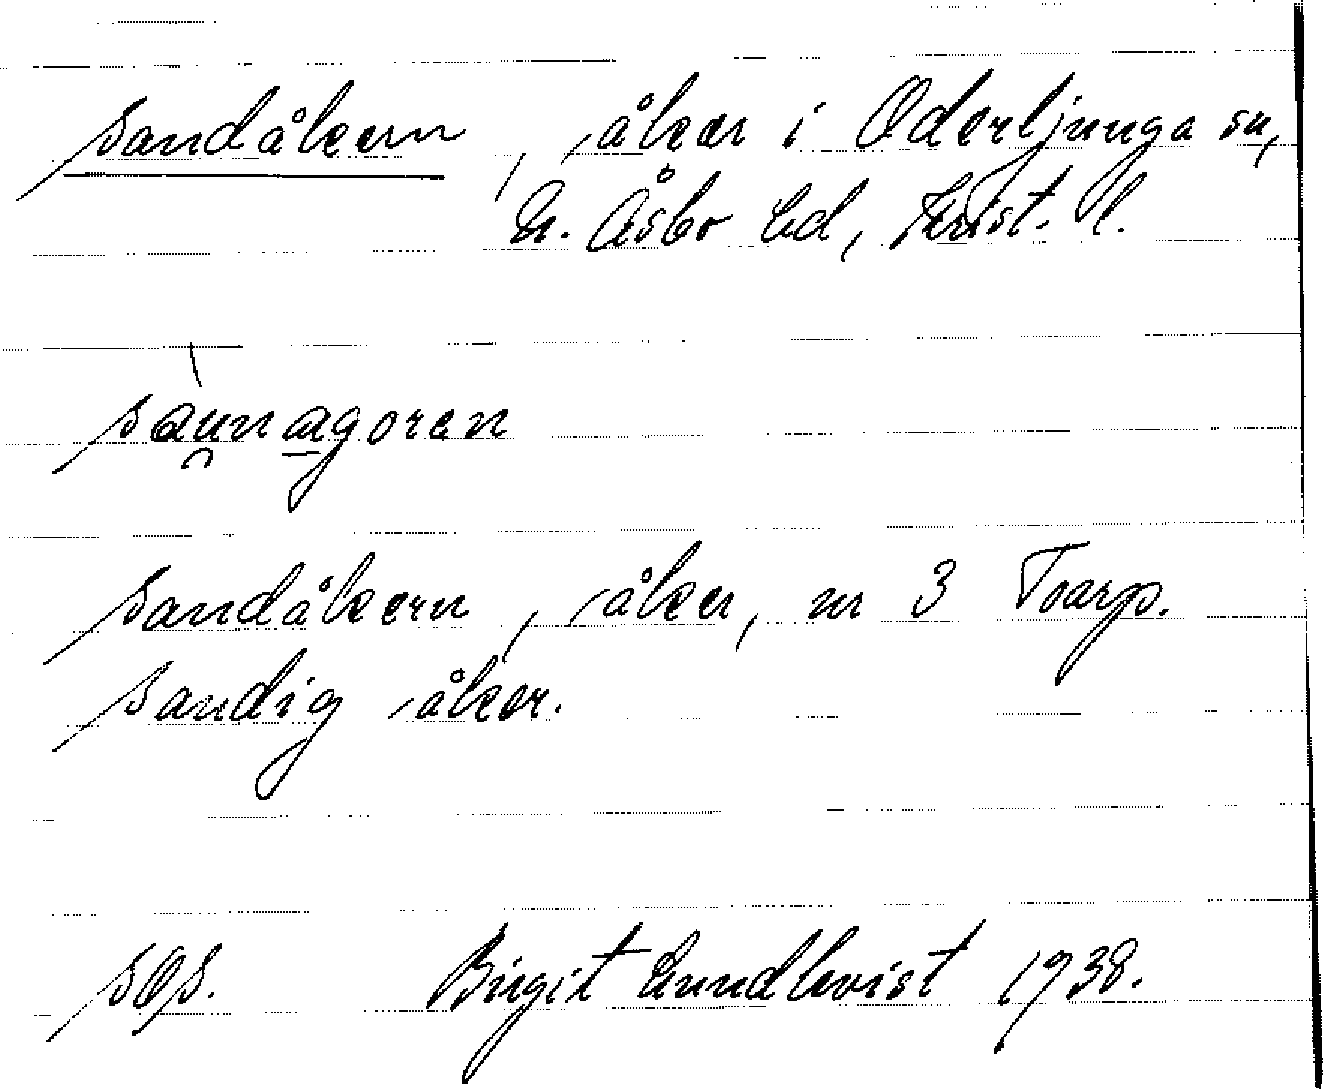 sandåkern, åker i Oderljunga sn,
N. Åsbo hd, Krist. l.
saunagoren
sandåkern, åker, nr 3 Toarp.
sandig åker.
Birgit Lundkvist 1938.